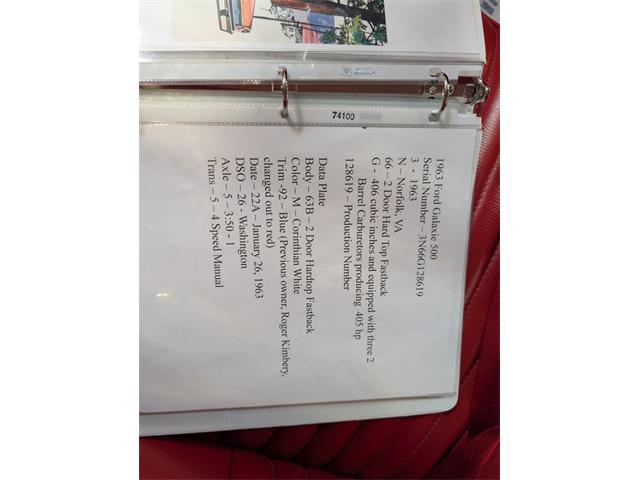 74100
1963 Ford Galaxie 500
Serial Number – 3N66G128619
3 - 1963
N – Norfolk, VA
66 – 2 Door Hard Top Fastback
G - 406 cubic inches and equipped with three 2
Barrel Carburetors producing 405 hp
128619 – Production Number
Data Plate
Body – 63B – 2 Door Hardtop Fastback
Color – M – Corinthian White
Trim -92 – Blue (Previous owner, Roger Kimbery,
changed out to red)
Date – 22A – January 26, 1963
DSO – 26 - Washington
Axle – 5 – 3:50 - 1
Trans – 5 – 4 Speed Manual